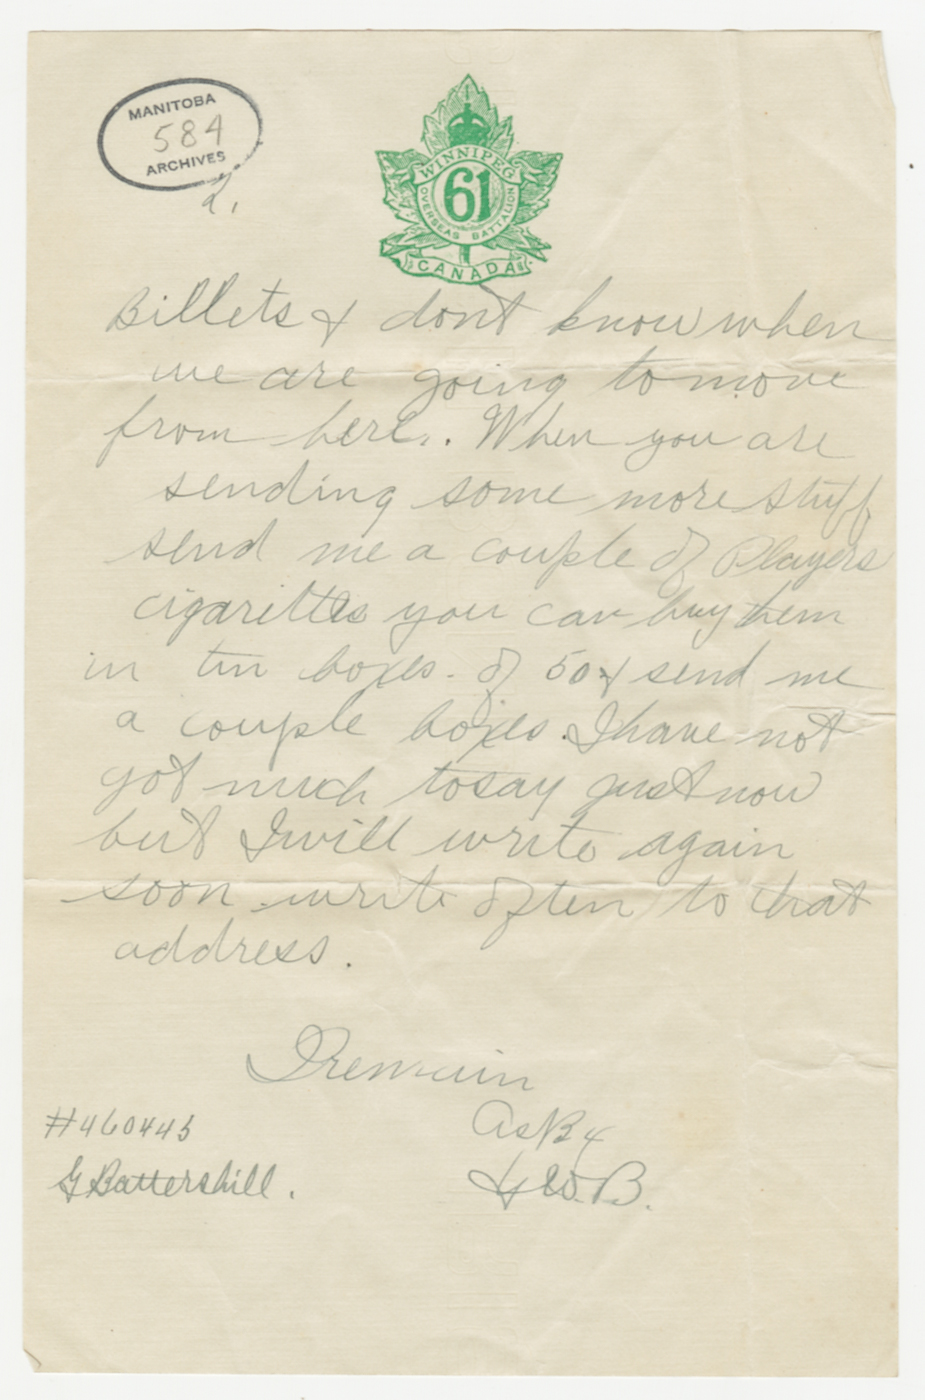 MANITOBA
584
ARCHIVES
2.
WINNIPEG
61
OVERSEAS BATTALION
CANADA
Billets & dont know when
we are going to move
from here. When you are
sending some more stuff
send me a couple of Players
cigarettes you can buy them
in tin boxes. of 50 & send me
a couple boxes. I have not
got much to say just now
but I will write again
soon write often to that
address.
I remain
#460445
G Battershill.
W. B.